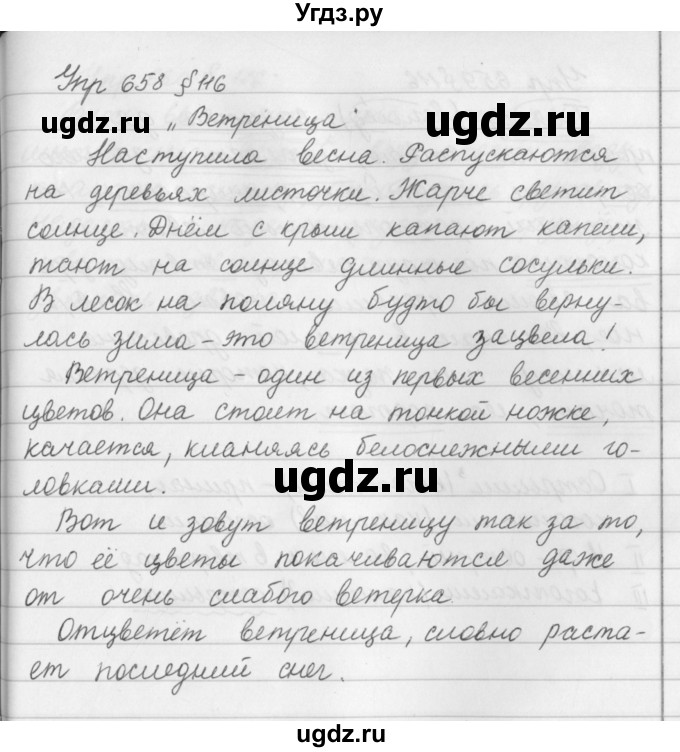 Угдз.ру
Упр 658 §116
ugdz.ru ugdz.ru
„Ветреница“
Наступила весна. Распускаются
на деревьях листочки. Жарче светит
солнце. Днём с крыш капают капели,
тают на солнце длинные сосульки.
В лесок на поляну будто бы верну-
лась зима – это ветреница зацвела!
Ветреница – один из первых весенних
цветов. Она стоит на тонкой ножке,
качается, кланяясь белоснежными го-
ловками.
ugdz.ru
Вот и зовут ветреницу так за то,
что её цветы покачиваются даже
от очень слабого ветерка.
Отцветёт ветреница, словно раста-
ет последний снег.
ugdz.ru ugdz.ru
ugdz.ru